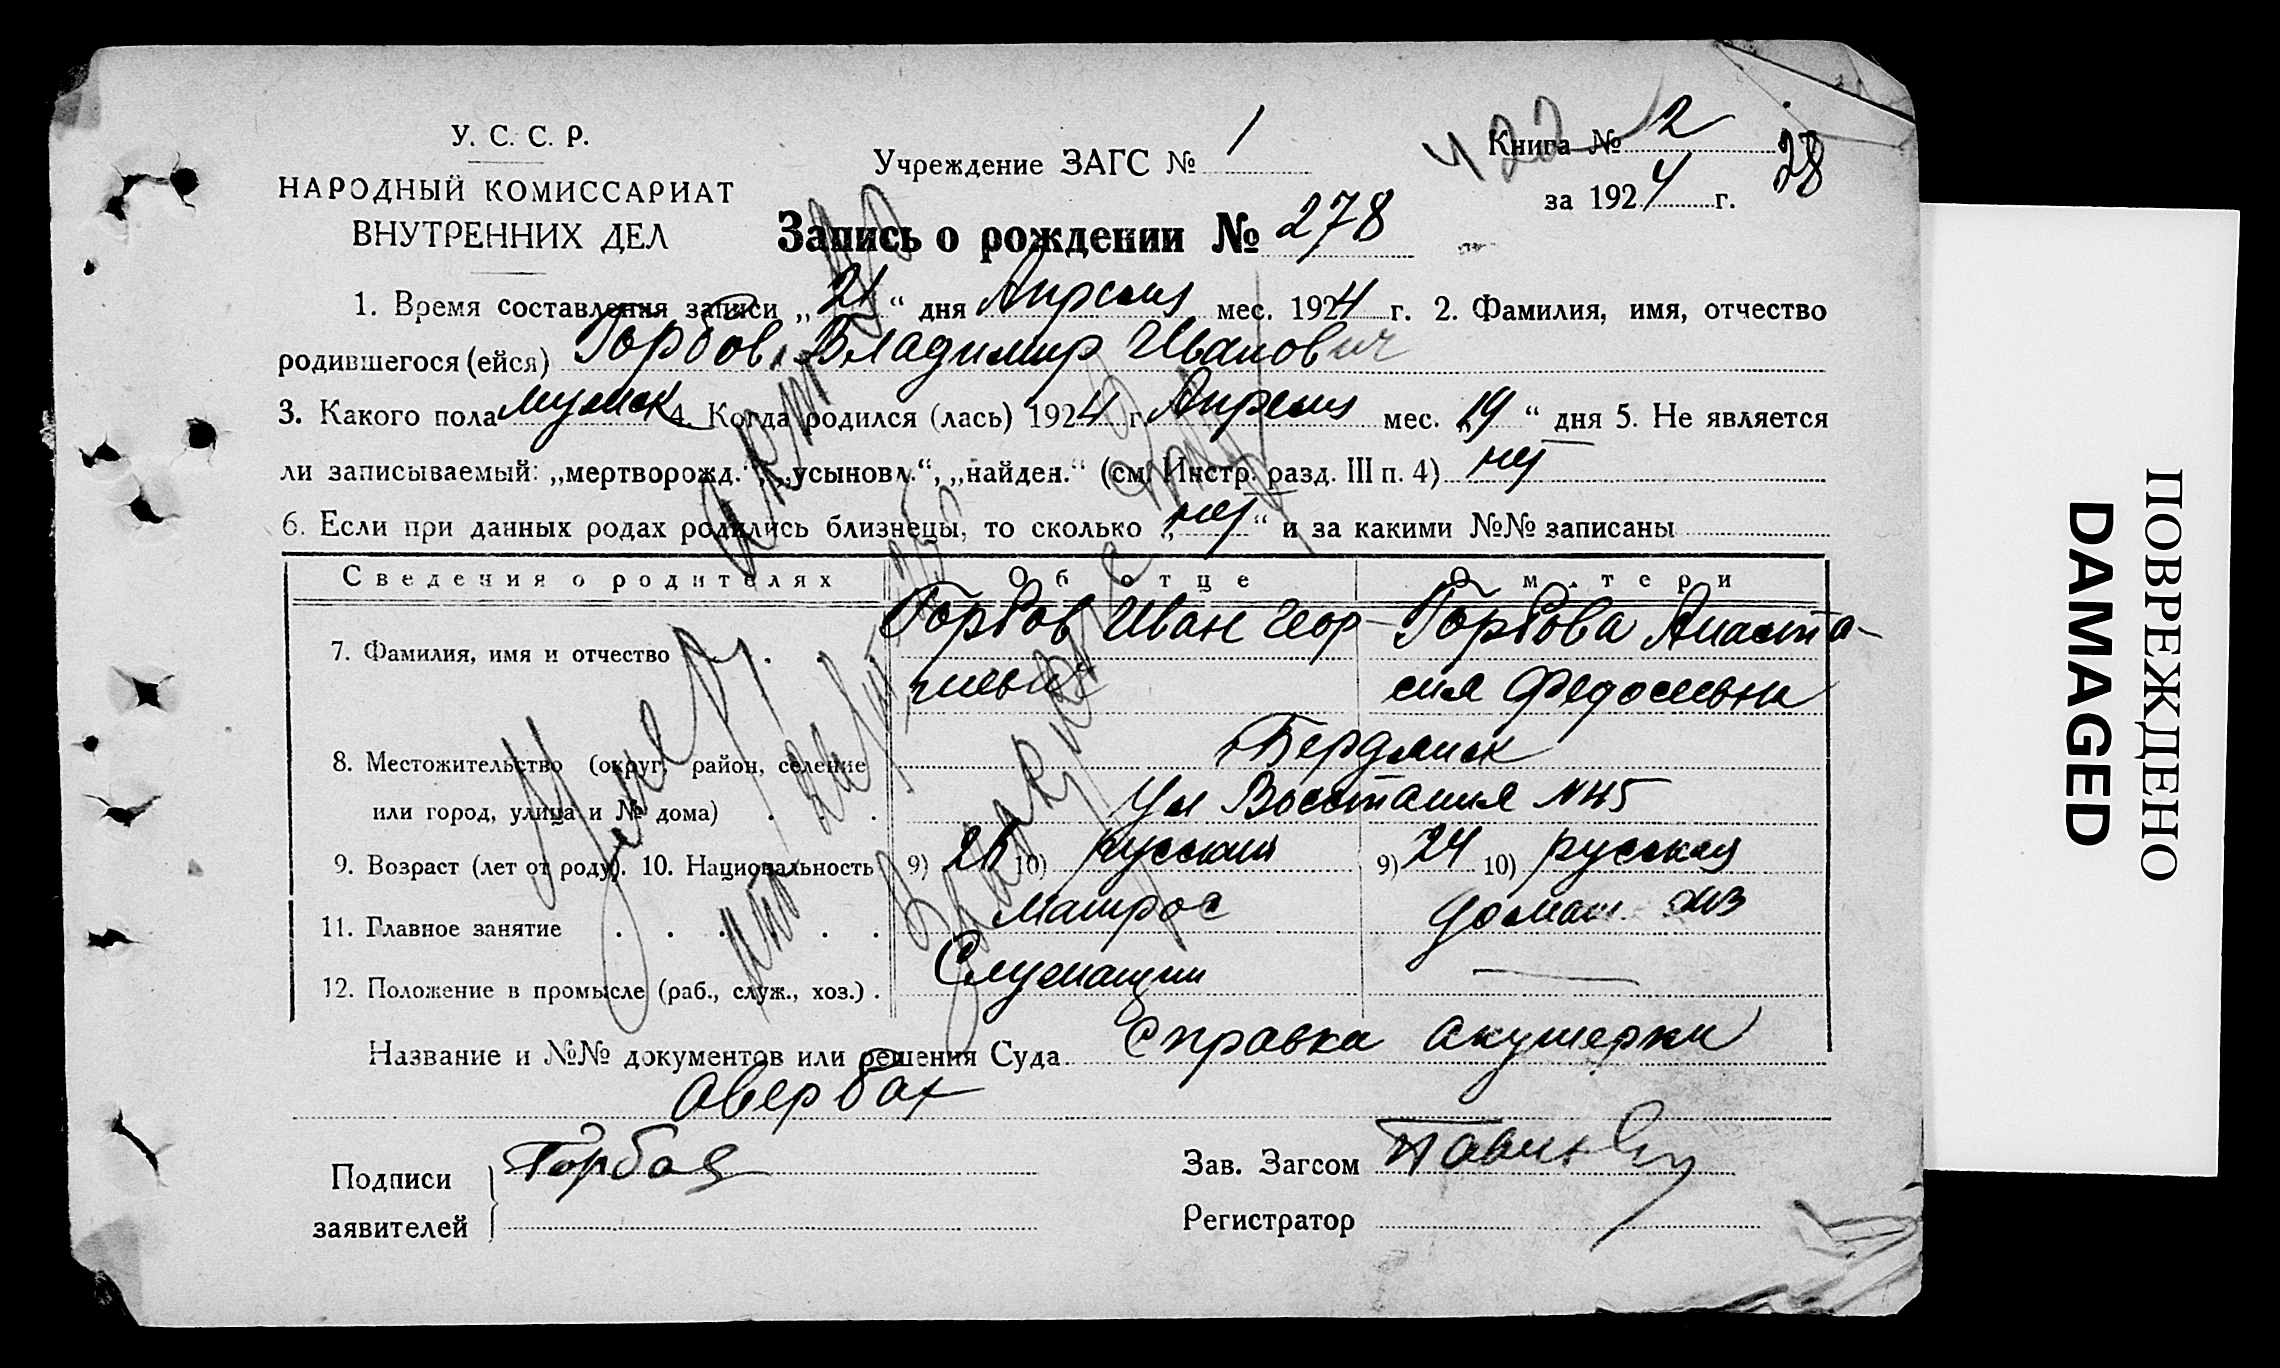 У. С. С. Р.
НАРОДНЫЙ КОМИССАРИАТ
ВНУТРЕННИХ ДЕЛ
Учреждение ЗАГС № 1
422
Книга № 2
28
за 1924 г.
Запись о рождении № 278
1. Время составления записи „21“ дня Апреля мес. 1924 г. 2. Фамилия, имя, отчество
родившегося (ейся) Горбов, Владимир Иванович
3. Какого пола мужск 4. Когда родился (лась) 1924 г. Апреля мес. „19“ дня 5. Не является
ли записываемый: „мертворожд.“, „усыновл.“, „найден.“ (см. Инстр. разд. III п. 4) нет
6. Если при данных родах родились близнецы, то сколько „нет“ и за какими №№ записаны
Сведения о родителях Об отце О матери
7. Фамилия, имя и отчество Горбов Иван Геор- Горбова Анаста-
гиевич сия Федосеевна
8. Местожительство (округ, район, селение Бердянск
или город, улица и № дома) Ул Восстания №45
9. Возраст (лет от роду). 10. Национальность 9) 26 10) русский 9) 24 10) русская
11. Главное занятие Матрос домаш. хоз
12. Положение в промысле (раб., служ., хоз.) Служащий —
Название и №№ документов или решения Суда Справка акушерки
Авербах
Подписи заявителей Горбов
Зав. Загсом
Регистратор
Умер
акт №
ПОВРЕЖДЕНО
DAMAGED